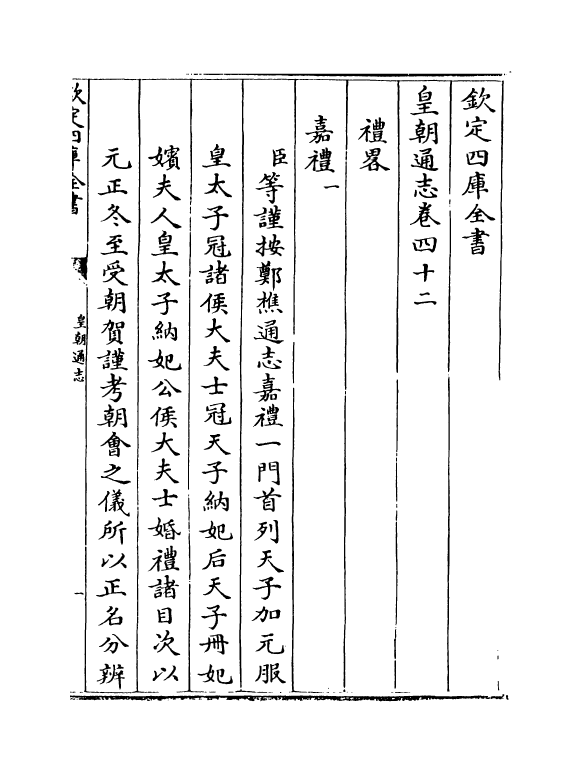 欽定四庫全書
皇朝通志卷四十二
禮畧
嘉禮一
臣等謹按鄭樵通志嘉禮一門首列天子加元服
皇太子冠諸侯大夫士冠天子納妃后天子冊妃
嬪夫人皇太子納妃公侯大夫士婚禮諸目次以
元正冬至受朝賀謹考朝會之儀所以正名分辨
欽定四庫全書
皇朝通志
一